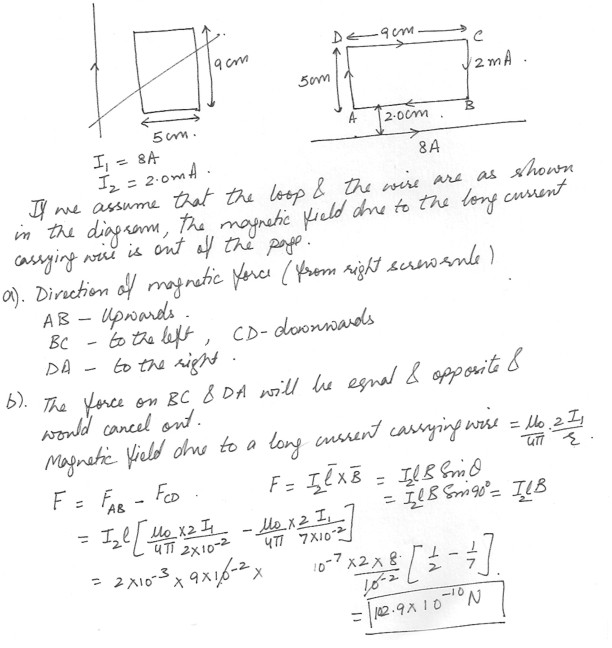 9cm
5cm.
I₁ = 8A
I₂ = 2.0mA.
D 9cm C
5cm
2mA.
A 2.0cm. B
8A
If we assume that the loop & the wire are as shown
in the diagram, the magnetic field due to the long current
carrying wire is out of the page.
a). Direction of magnetic force (from right screw rule)
AB – Upwards.
BC – to the left, CD – downwards
DA – to the right.
b). The force on BC & DA will be equal & opposite &
would cancel out.
Magnetic field due to a long current carrying wire = μ₀/4π . 2I₁/r.
F = F_AB − F_CD. F = I₂ l̄ × B̄ = I₂lB Sinθ
= I₂lB Sin90° = I₂lB
= I₂l [μ₀/4π × 2I₁/2×10⁻² − μ₀/4π × 2I₁/7×10⁻²]
= 2×10⁻³ × 9×10⁻² × 10⁻⁷ × 2 × 8/10⁻² [1/2 − 1/7].
= 102.9×10⁻¹⁰ N